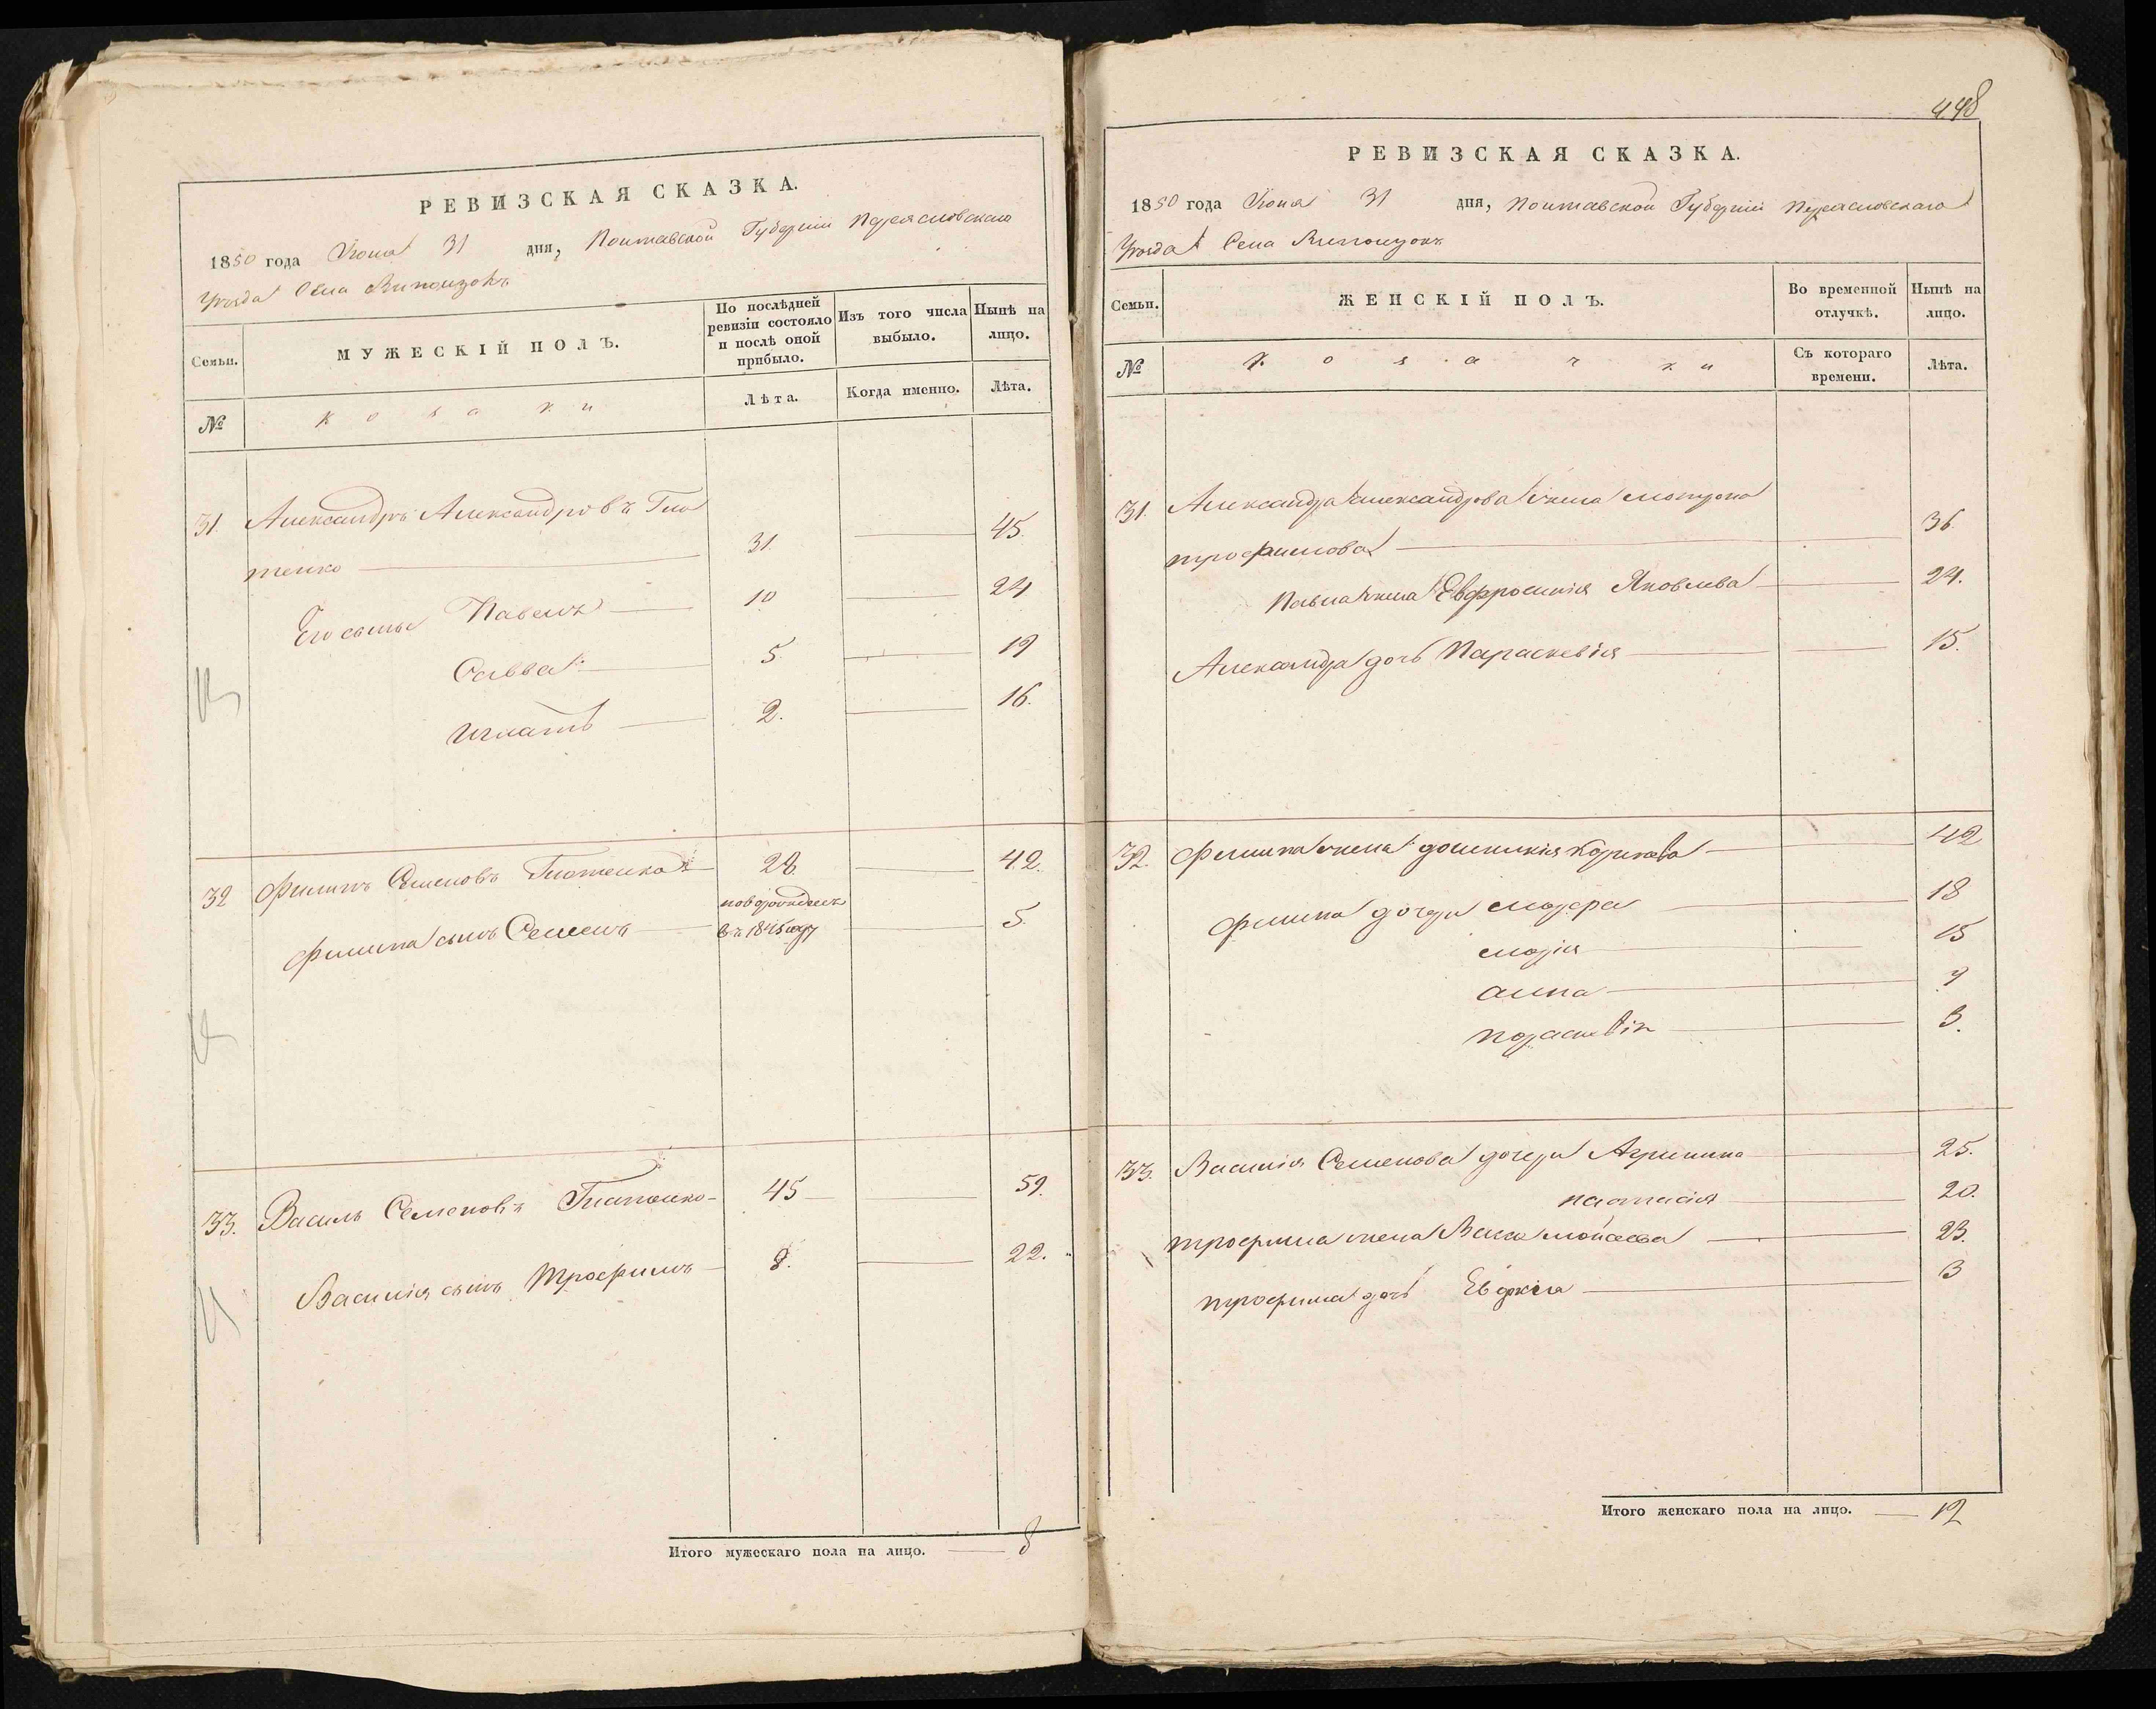 РЕВИЗСКАЯ СКАЗКА.
1850 года Июня 31 дня, Полтавской Губерніи Переясловскаго
Уезда Села Випользокъ
Семьи.
МУЖЕСКІЙ ПОЛЪ.
По послѣдней ревизіи состояло и послѣ оной прибыло.
Изъ того числа выбыло.
Нынѣ на лицо.
№
козаки
Лѣта.
Когда именно.
Лѣта.
31. Александръ Александровъ Гна
тенко 31. 45.
Его сыны Павелъ 10 24
Савва 5. 19
Игнатъ 2. 16.
32 Филипъ Семеновъ Гнатенко 28. 42.
Филипа сынъ Семенъ новорожден въ 1845 году 5.
33. Василь Семеновъ Гнатенко 45 59.
Василія сынъ Трофимъ 8. 22.
Итого мужескаго пола на лицо. 8
448
РЕВИЗСКАЯ СКАЗКА.
1850 года Июня 31 дня, Полтавской Губерніи Переясловскаго
Уезда Села Випользокъ
Семьи.
ЖЕНСКІЙ ПОЛЪ.
Во временной отлучкѣ.
Нынѣ на лицо.
№
козачки
Съ котораго времени.
Лѣта.
31. Александра Александрова жена Мотрона
Трофимова 36.
Павла жена Евфросинія Яковлева 24.
Александра дочь Параскевія 15.
32. Филипа жена Домникія 42
Филипа дочери 18
Марія 15
Анна 9
Параскевія 3.
33. Василія Семенова дочери Агрипина 25.
Настасія 20.
Трофима жена Васса Мойсеева 23.
Трофима дочь Евдокія 3
Итого женскаго пола на лицо. 12